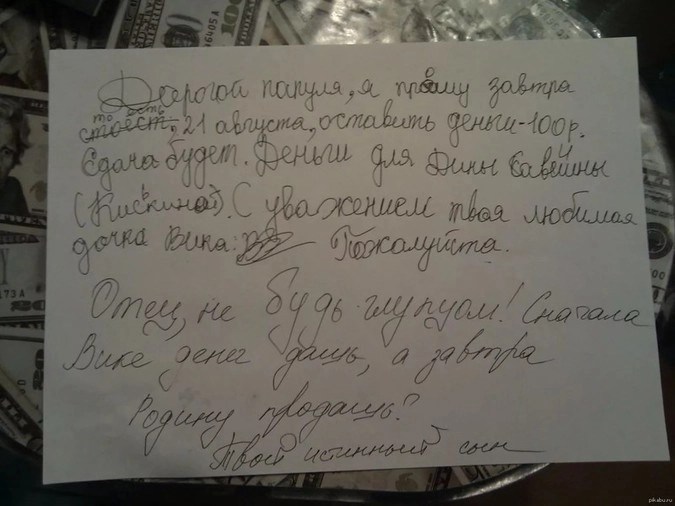 Дорогой папуля, я прошу завтра
то есть
стоест, 21 августа, оставить деньги-100р.
Сдача будет. Деньги для Дины Савейны
(Киськиной). С уважением твоя любимая
дочка Вика: Пожалуйста.
Отец, не будь глупцом! Сначала
Вике денег дашь, а завтра
Родину продашь?
Твой истинный сын
pikabu.ru